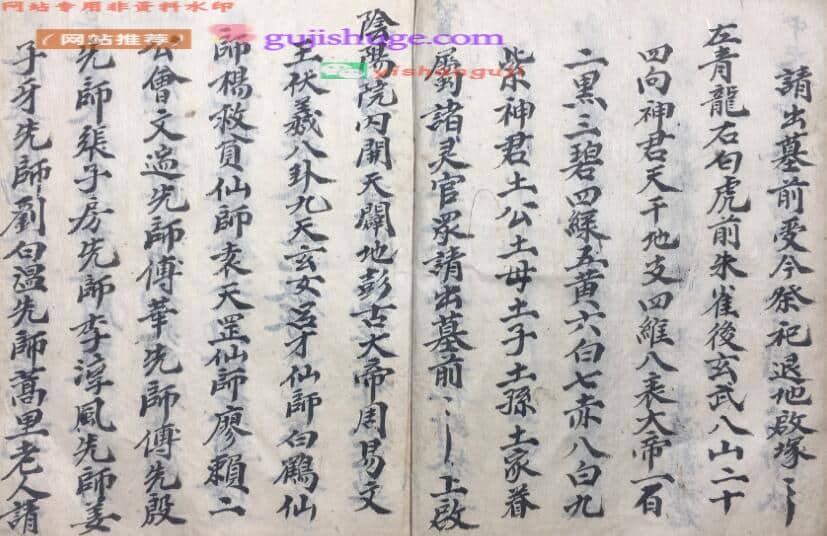 网站专用非资料水印
(网站推荐)
gujishuge.com
yishanguji
請出墓前受今祭祀退地啟塚〻
左青龍右白虎前朱雀後玄武八山二十
四向神君天干地支四維八表大帝一白
二黑三碧四綠五黄六白七赤八白九
紫神君土公土母土子土孫土家眷
屬諸灵官眾請出墓前〻〻上啟
陰陽院内開天闢地彭古大帝周易文
王伏羲八卦九天玄女呂才仙師白鶴仙
師楊救貧仙師袁天罡仙師廖賴二
公曾文遄先師傅華先師傅先殷
先師張子房先師李淳風先師姜
子牙先師劉白温先師蒿里老人請